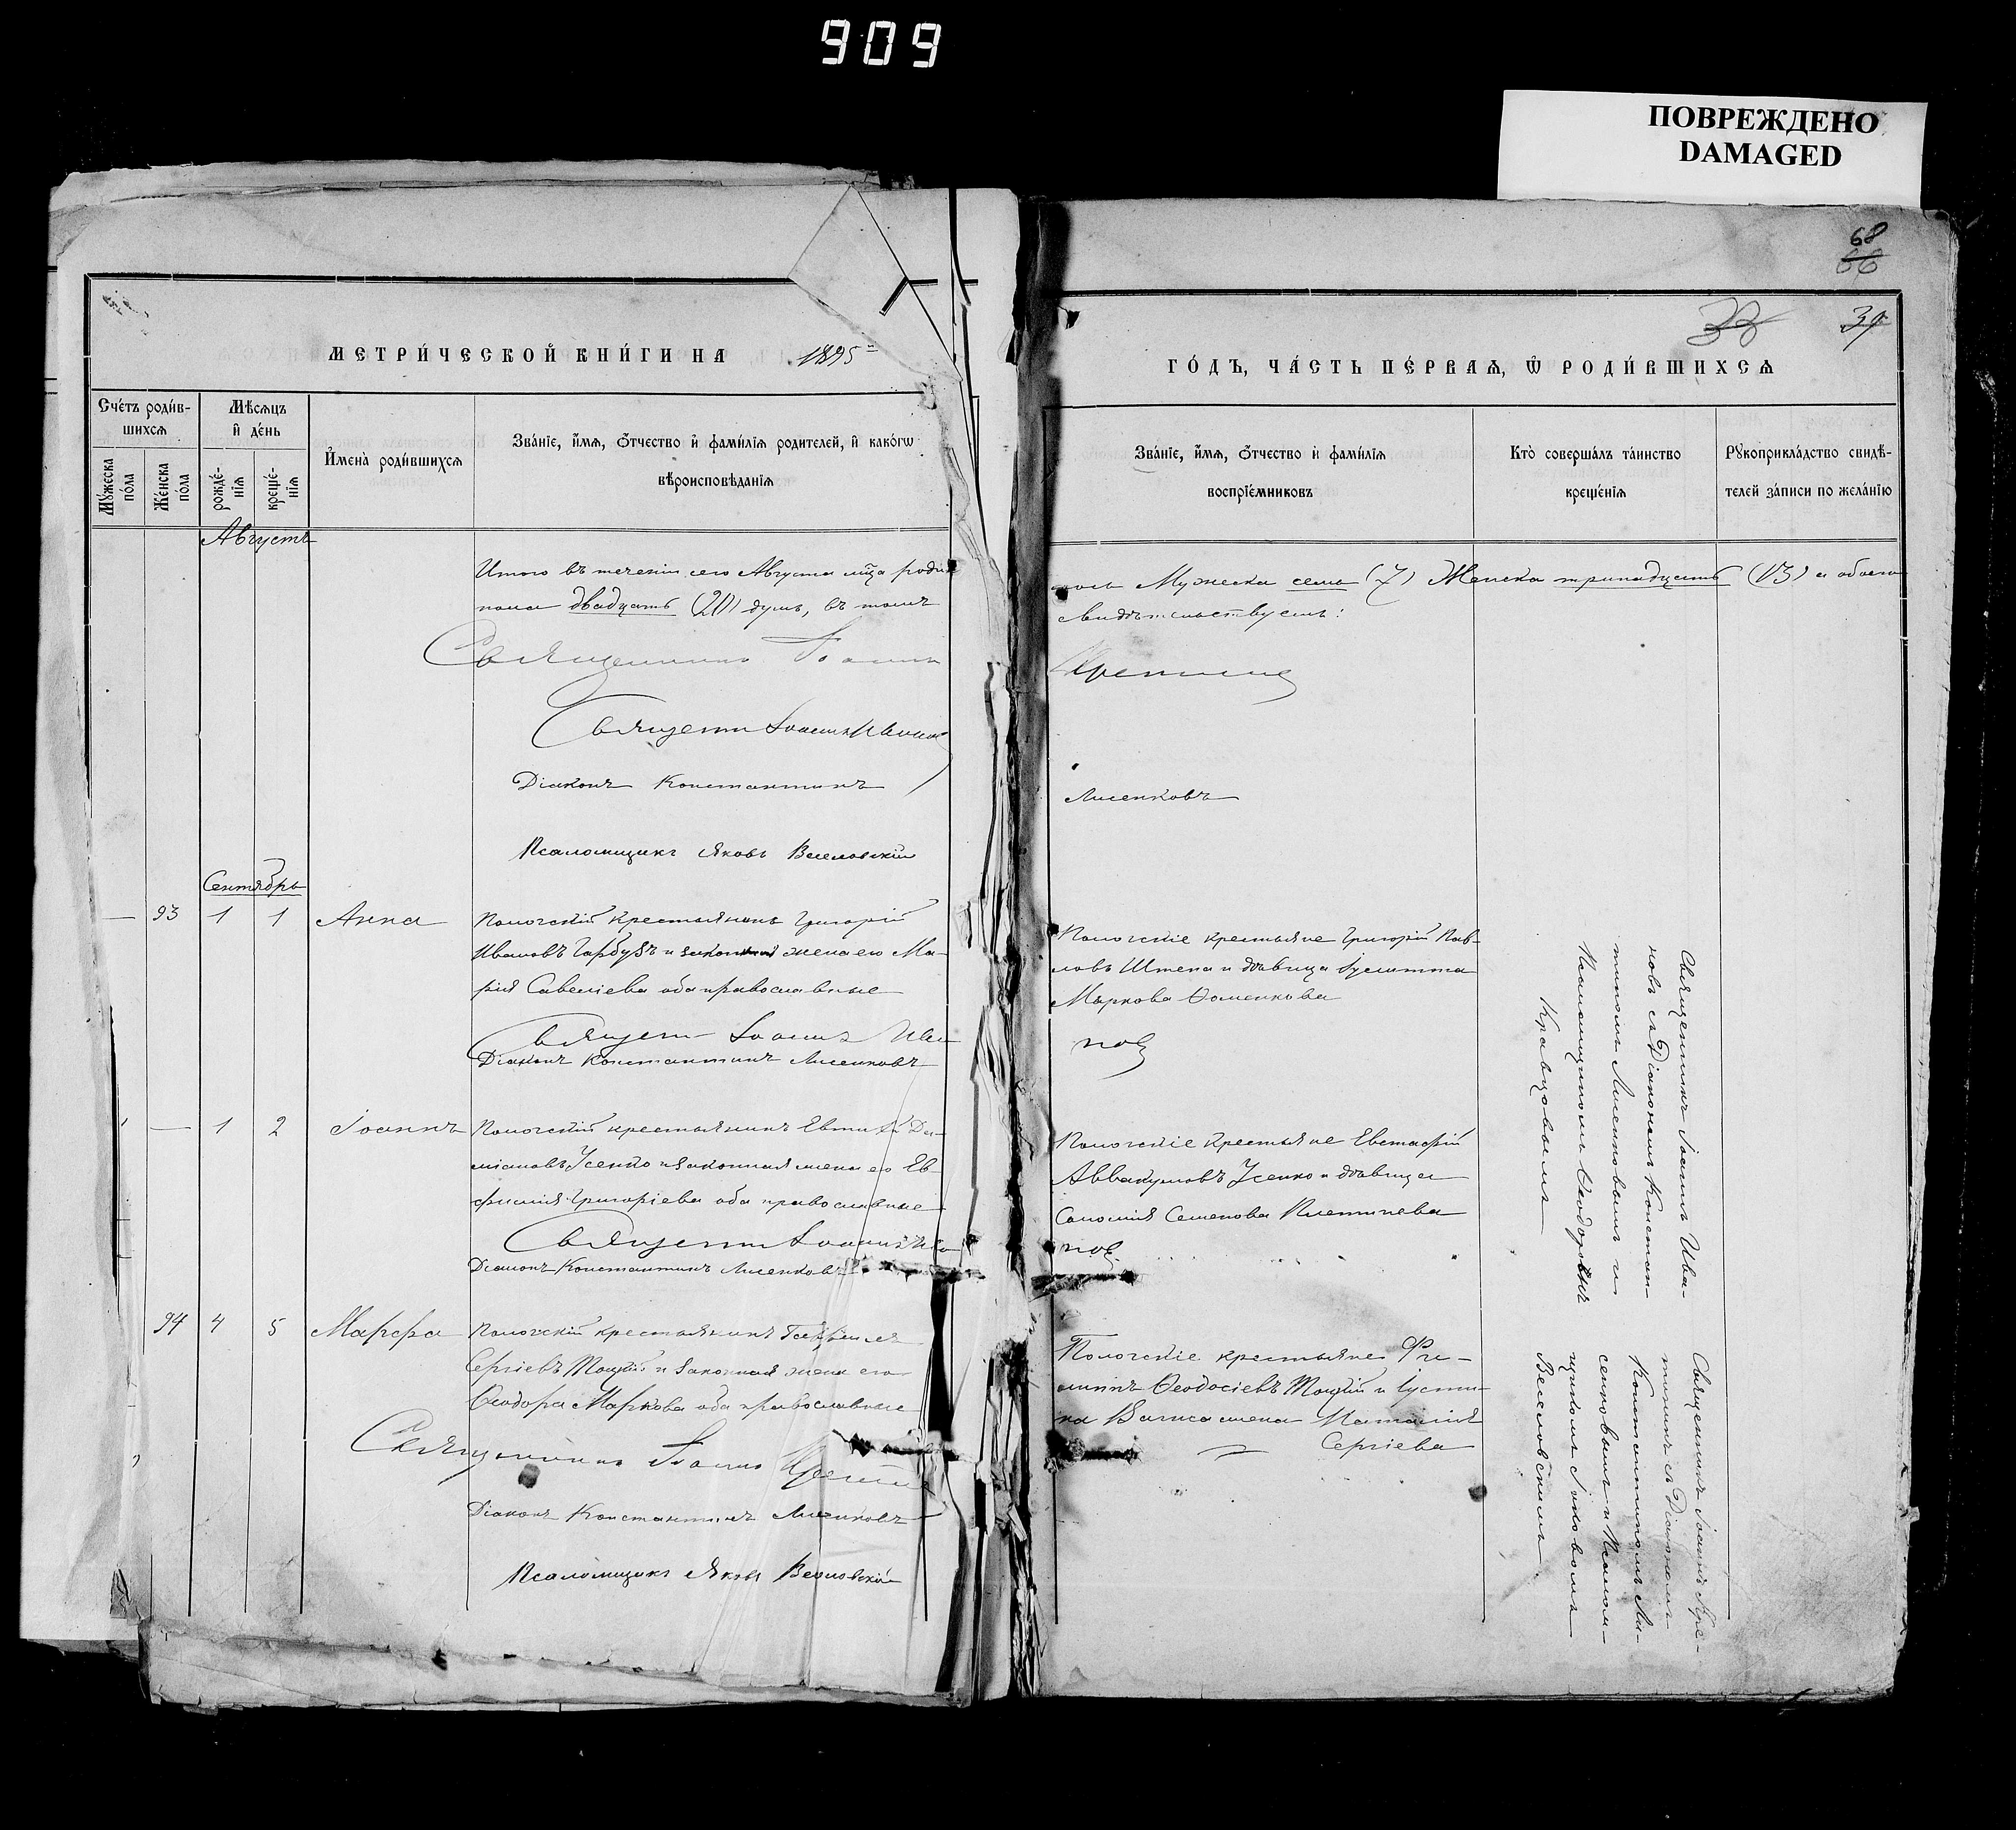 909
ПОВРЕЖДЕНО
DAMAGED
68
66
38
39
МЕТРИ́ЧЕСКОЙ КНИ́ГИ НА 1895
ГО́ДЪ, ЧА́СТЬ ПЕ́РВАѦ, Ѿ РОДИ́ВШИХСѦ
Сче́тъ роди́в-
шихсѧ
Мꙋ́жеска
по́ла
Же́нска
по́ла
Мѣ́сѧцъ
и҆ де́нь
рожде́-
нїѧ
креще́-
нїѧ
И҆мена̀ роди́вшихсѧ
Зва́нїе, и҆́мѧ, ѻ҆́тчество и҆ фами́лїѧ родителей, и҆ како́гѡ
вѣроисповѣ́данїѧ
Зва́нїе, и҆́мѧ, ѻ҆́тчество и҆ фами́лїѧ
воспрїе́мниковъ
Кто̀ соверша́лъ та́инство
креще́нїѧ
Рꙋкоприкла́дство свидѣ́-
телей за́писи по жела́нїю
Августъ
Итого въ теченіи сего Августа мца роди
лось Мужеска семь (7) Женска тринадцать (13) а обоего
пола двадцать (20) душъ, въ томъ
свидѣтельствуемъ:
Священникъ Іоаннъ
Священ Іоаннъ Иванов
Діаконъ Константинъ
Лисенковъ
Псаломщикъ Яковъ Веселовскій
Сентябрь
— 93 1 1 Анна
Пологскій крестьянинъ Григорій
Ивановъ Гарбузъ и законная жена его Ма-
рія Савеліева оба православные
Священ Іоаннъ Ива
Діаконъ Константинъ Лисенковъ
Пологскіе крестьяне Григорій Пав-
ловъ Штепа и дѣвица Іулитта
Маркова Ѳоменкова
новъ
Священникъ Іоаннъ Ива-
новъ съ Діакономъ Констан-
тиномъ Лисенковымъ и
Псаломщикомъ Ѳеодоромъ
Кравцовымъ
— 1 2 Іоаннъ
Пологскій крестьянинъ Евтихій Да-
міановъ Усенко и законная жена его Ев-
фимія Григоріева оба православные
Священ Іоаннъ Ива
Діаконъ Константинъ Лисенковъ
Пологскіе крестьяне Евстафій
Аввакумовъ Усенко и дѣвица
Саломія Семенова
новъ
94 4 5 Марфа
Пологскій крестьянинъ Гавріилъ
Сергіевъ Тоцкій и законная жена его
Ѳеодора Маркова оба православные
Священникъ Іоаннъ
Діаконъ Константинъ Лисенковъ
Псаломщикъ Яковъ Веселовскій
Пологскіе крестьяне Фи-
липпъ Ѳеодосіевъ Тоцкій и Іусти-
на жена Наталія
Сергіева
Священникъ Іоаннъ
съ Діакономъ
Константиномъ Ли-
сенковымъ и Псалом-
щикомъ Іаковомъ
Веселовскимъ